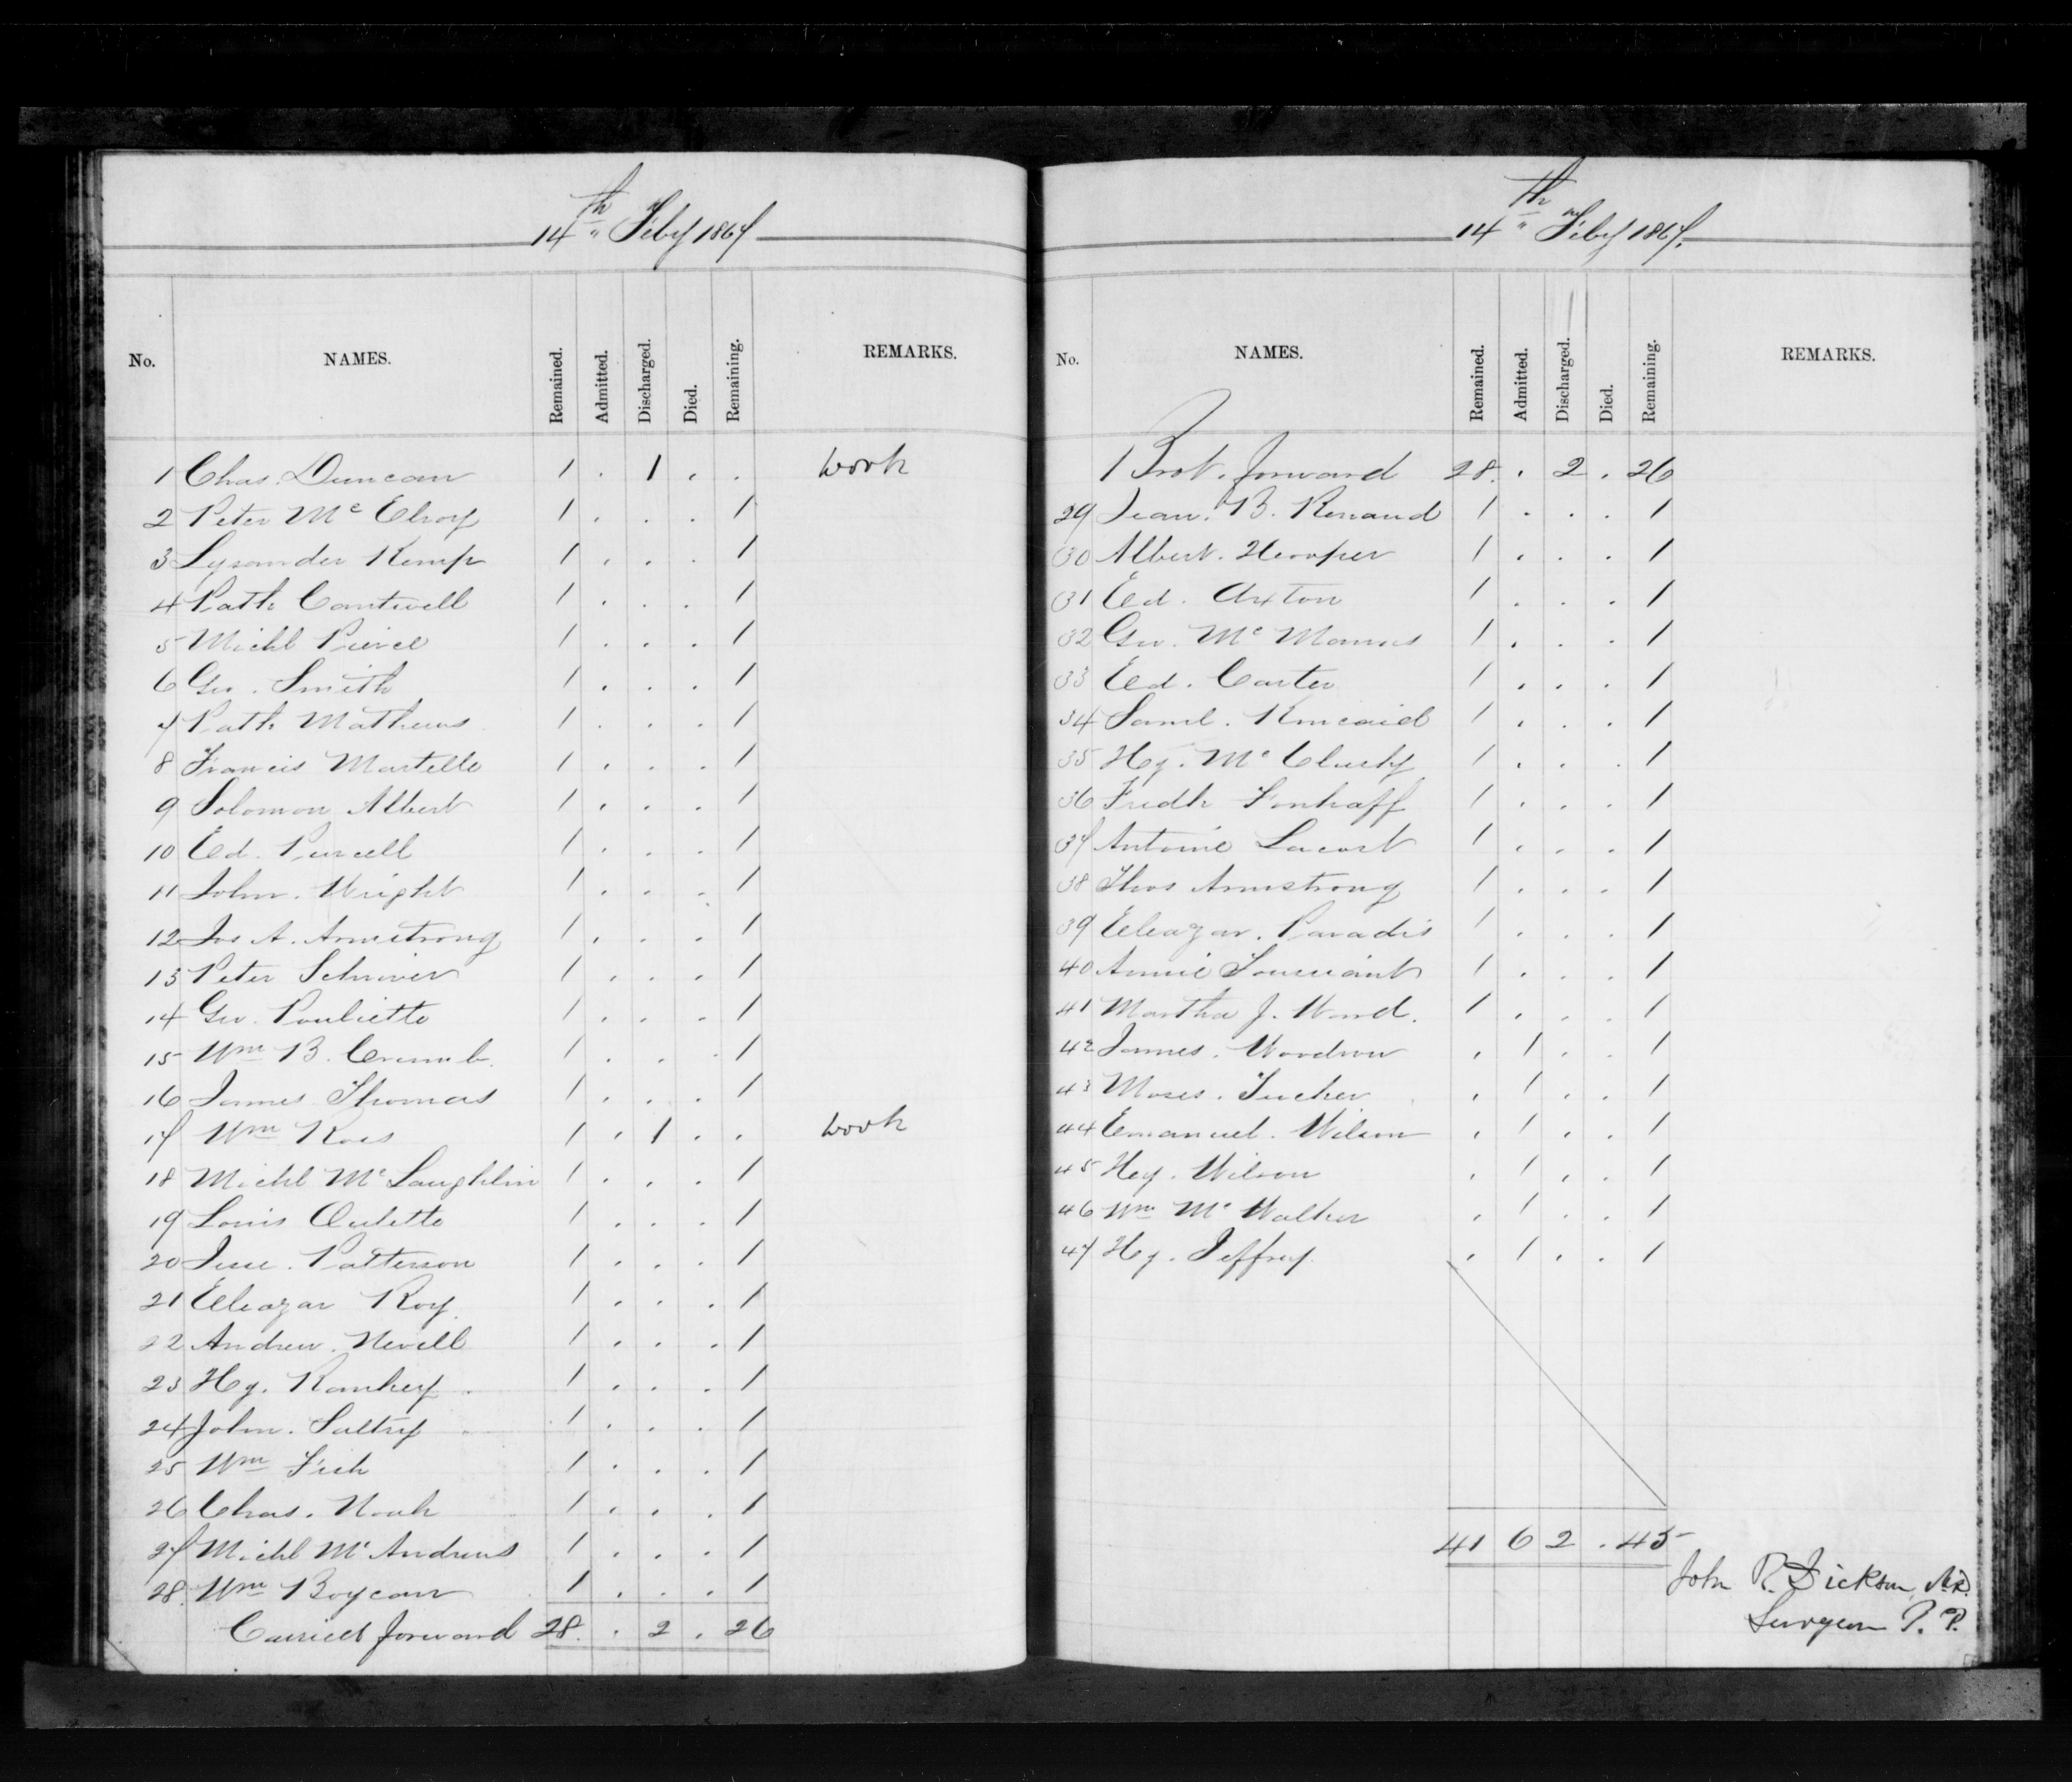 14th Feby 1867
No. NAMES. Remained. Admitted. Discharged. Died. Remaining. REMARKS.
1 Chas. Duncan 1 . 1 . . Work
2 Peter Mc Elroy 1 . . . 1
3 Lysander Kemp 1 . . . 1
4 Patk Cantwell 1 . . . 1
5 Michl Pierce 1 . . . 1
6 Geo. Smith 1 . . . 1
7 Patk Mathews 1 . . . 1
8 Francis Martelle 1 . . . 1
9 Solomon Albert 1 . . . 1
10 Ed. Purcell 1 . . . 1
11 John. Wright 1 . . . 1
12 Jos A. Armstrong 1 . . . 1
13 Peter Schriver 1 . . . 1
14 Geo. Pouliette 1 . . . 1
15 Wm B. Crumb. 1 . . . 1
16 James Thomas 1 . . . 1
17 Wm Ross 1 . 1 . . Work
18 Michl Mc Laughlin 1 . . . 1
19 Louis Oulette 1 . . . 1
20 Jesse. Patterson 1 . . . 1
21 Eleazar Roy 1 . . . 1
22 Andrew. Nevell 1 . . . 1
23 Hy. Rankey 1 . . . 1
24 John. Saltry 1 . . . 1
25 Wm Fish 1 . . . 1
26 Chas. Noah 1 . . . 1
27 Michl Mc Andrews 1 . . . 1
28. Wm Boycan 1 . . . 1
Carried forward 28. . 2 . 26
14th Feby 1867.
No. NAMES. Remained. Admitted. Discharged. Died. Remaining. REMARKS.
Brot. forward 28. . 2 . 26
29 Jean. B. Renaud 1 . . . 1
30 Albert. Hooper 1 . . . 1
31 Ed. Axton 1 . . . 1
32 Geo. Mc Manus 1 . . . 1
33 Ed. Carter 1 . . . 1
34 Saml. Kincaid 1 . . . 1
35 Hy. Mc Clusky 1 . . . 1
36 Fredk 1 . . . 1
37 Antoine Lacost 1 . . . 1
38 Thos Armstrong 1 . . . 1
39 Eleazar. Paradis 1 . . . 1
40 Annie Toussaint 1 . . . 1
41 Martha J. Wood. 1 . . . 1
42 James. Woodrow . 1 . . 1
43 Moses. Tucker . 1 . . 1
44 Emanuel. Wilson . 1 . . 1
45 Hy. Wilson . 1 . . 1
46 Wm Mc Walker . 1 . . 1
47 Hy. Jeffrey. . 1 . . 1
41 6 2 . 45
John R. Dickson, M.D.
Surgeon P. P.